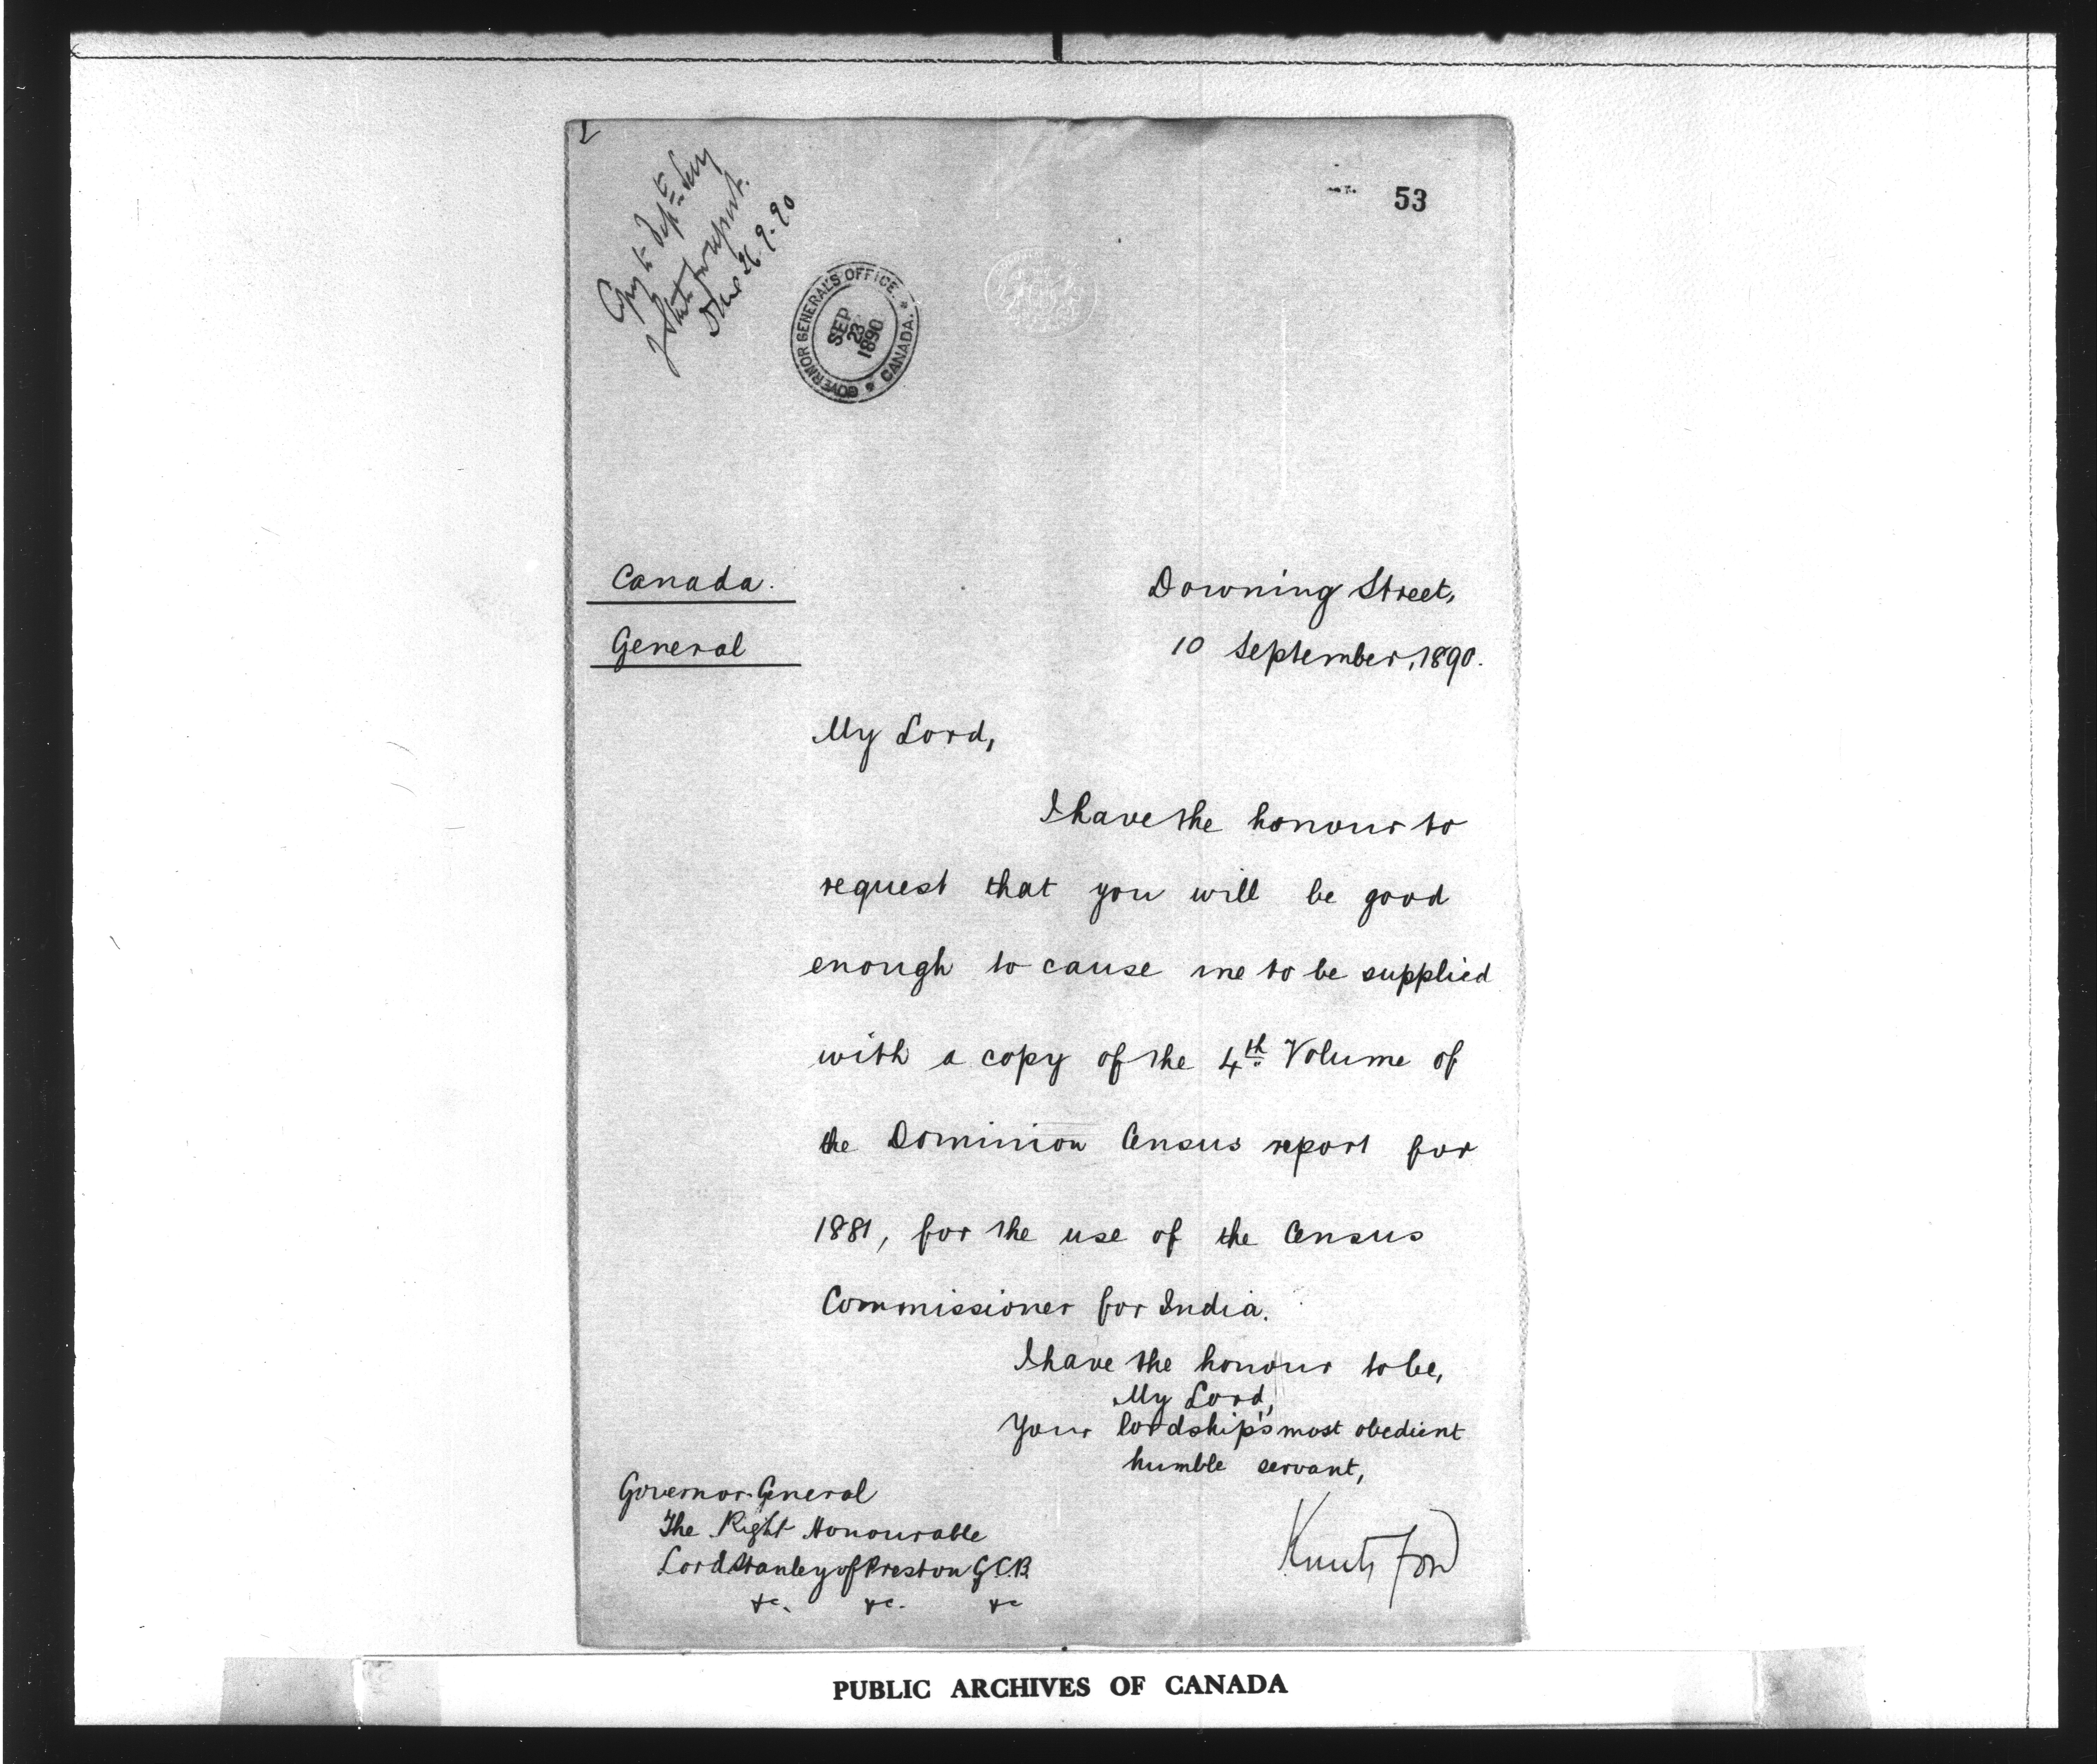 53
Copy to Dept. Secy
of State for report.
26.9.90
GOVERNOR GENERAL'S OFFICE. * CANADA. *
SEP
23
1890
Canada.
General
Downing Street,
10 September, 1890.
My Lord,
I have the honour to
request that you will be good
enough to cause me to be supplied
with a copy of the 4th Volume of
the Dominion Census report for
1881, for the use of the Census
Commissioner for India.
I have the honour to be,
My Lord,
Your lordship's most obedient
humble servant,
Knutsford
Governor-General
The Right Honourable
Lord Stanley of Preston G.C.B.
&c. &c. &c
PUBLIC ARCHIVES OF CANADA